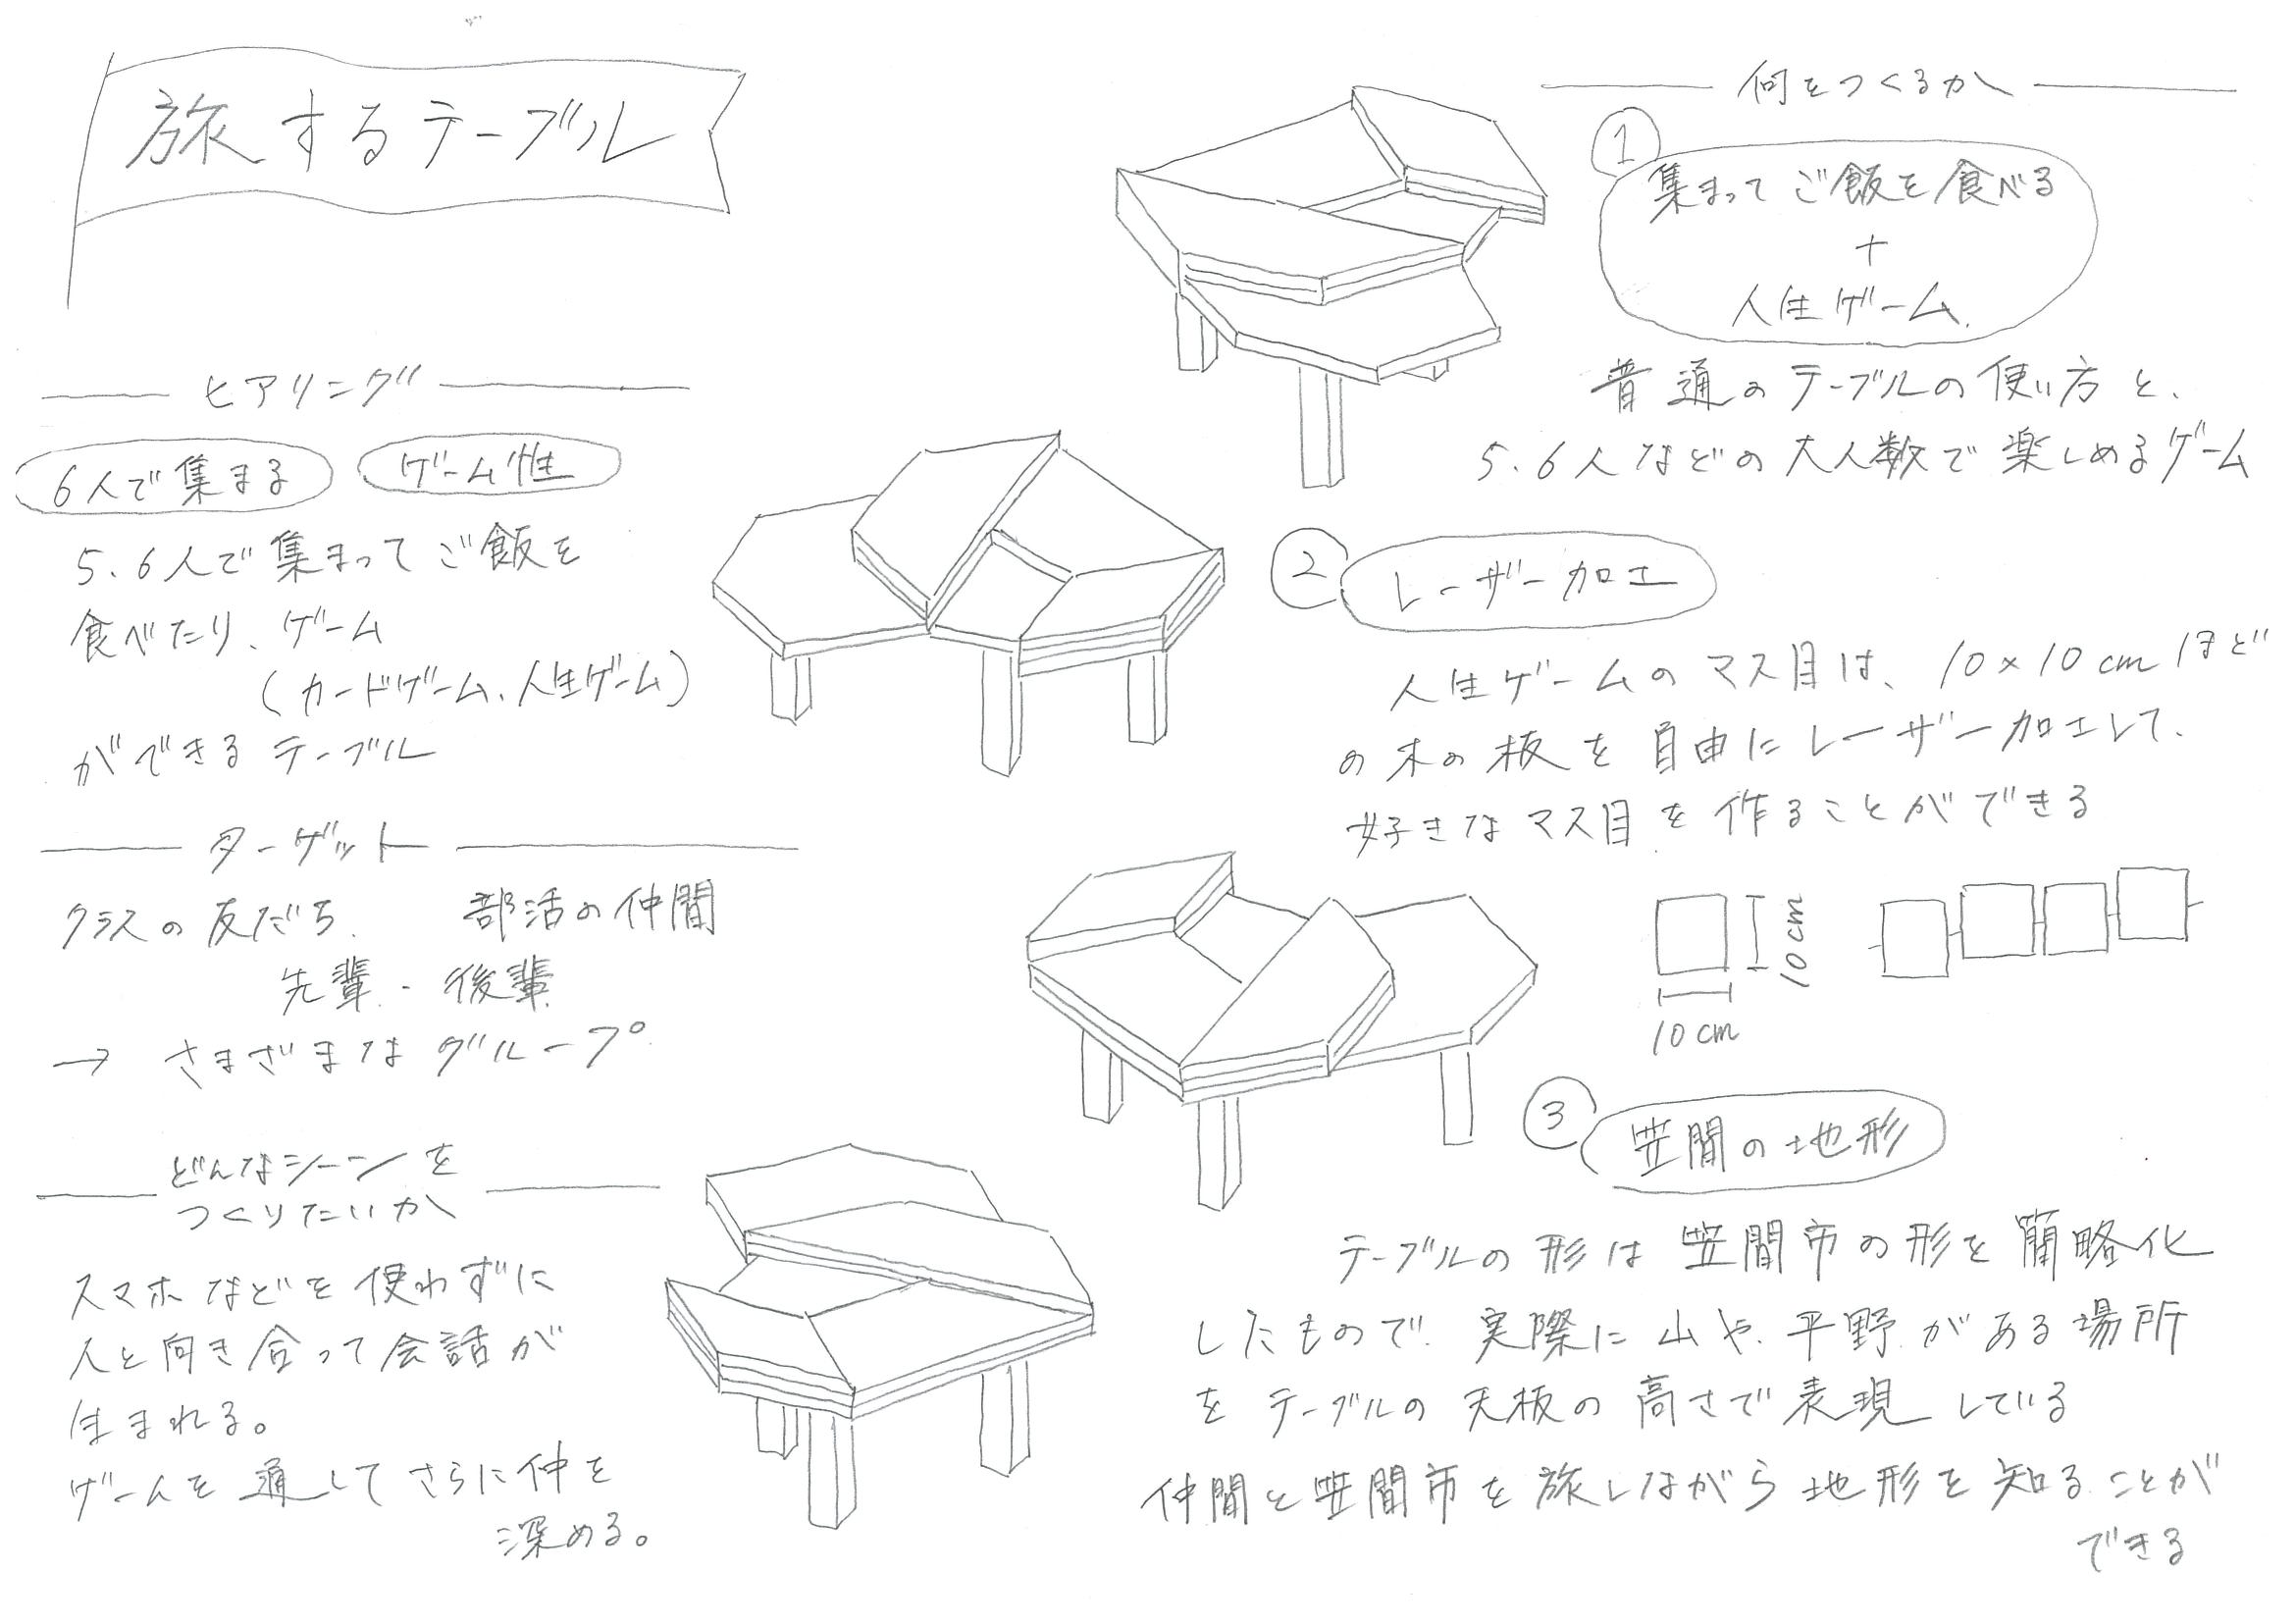 旅するテーブル
ヒアリング
6人で集まる
ゲーム性
5、6人で集まってご飯を
食べたり、ゲーム
(カードゲーム、人生ゲーム)
ができるテーブル
ターゲット
クラスの友だち、 部活の仲間
先輩・後輩
→ さまざまなグループ
どんなシーンを
つくりたいか
スマホなどを使わずに
人と向き合って会話が
生まれる。
ゲームを通してさらに仲を
深める。
何をつくるか
1
集まってご飯を食べる
+
人生ゲーム
普通のテーブルの使い方と、
5、6人などの大人数で楽しめるゲーム
2
レーザー加工
人生ゲームのマス目は、10×10cmほど
の木の板を自由にレーザー加工して、
好きなマス目を作ることができる
10cm
10cm
3
笠間の地形
テーブルの形は笠間市の形を簡略化
したもので、実際に山や、平野がある場所
をテーブルの天板の高さで表現している
仲間と笠間市を旅しながら地形を知ることが
できる